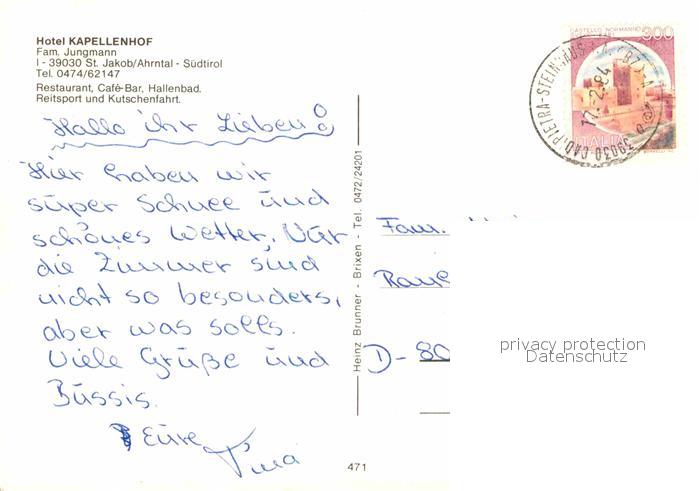 Hotel KAPELLENHOF
Fam. Jungmann
I - 39030 St. Jakob/Ahrntal - Südtirol
Tel. 0474/62147
Restaurant, Café-Bar, Hallenbad.
Reitsport und Kutschenfahrt.
Hallo ihr Lieben!
Hier haben wir
super Schnee und
schönes Wetter. Nur
die Zimmer sind
nicht so besonders,
aber was solls.
Viele Grüße und
Bussis.
Eure
Tina
Heinz Brunner - Brixen - Tel. 0472/24201
471
CASTELLO NORMANNO
300
ITALIA
39030 CAD. PIETRA-STEINHAUS
Fam.
D-80
privacy protection
Datenschutz